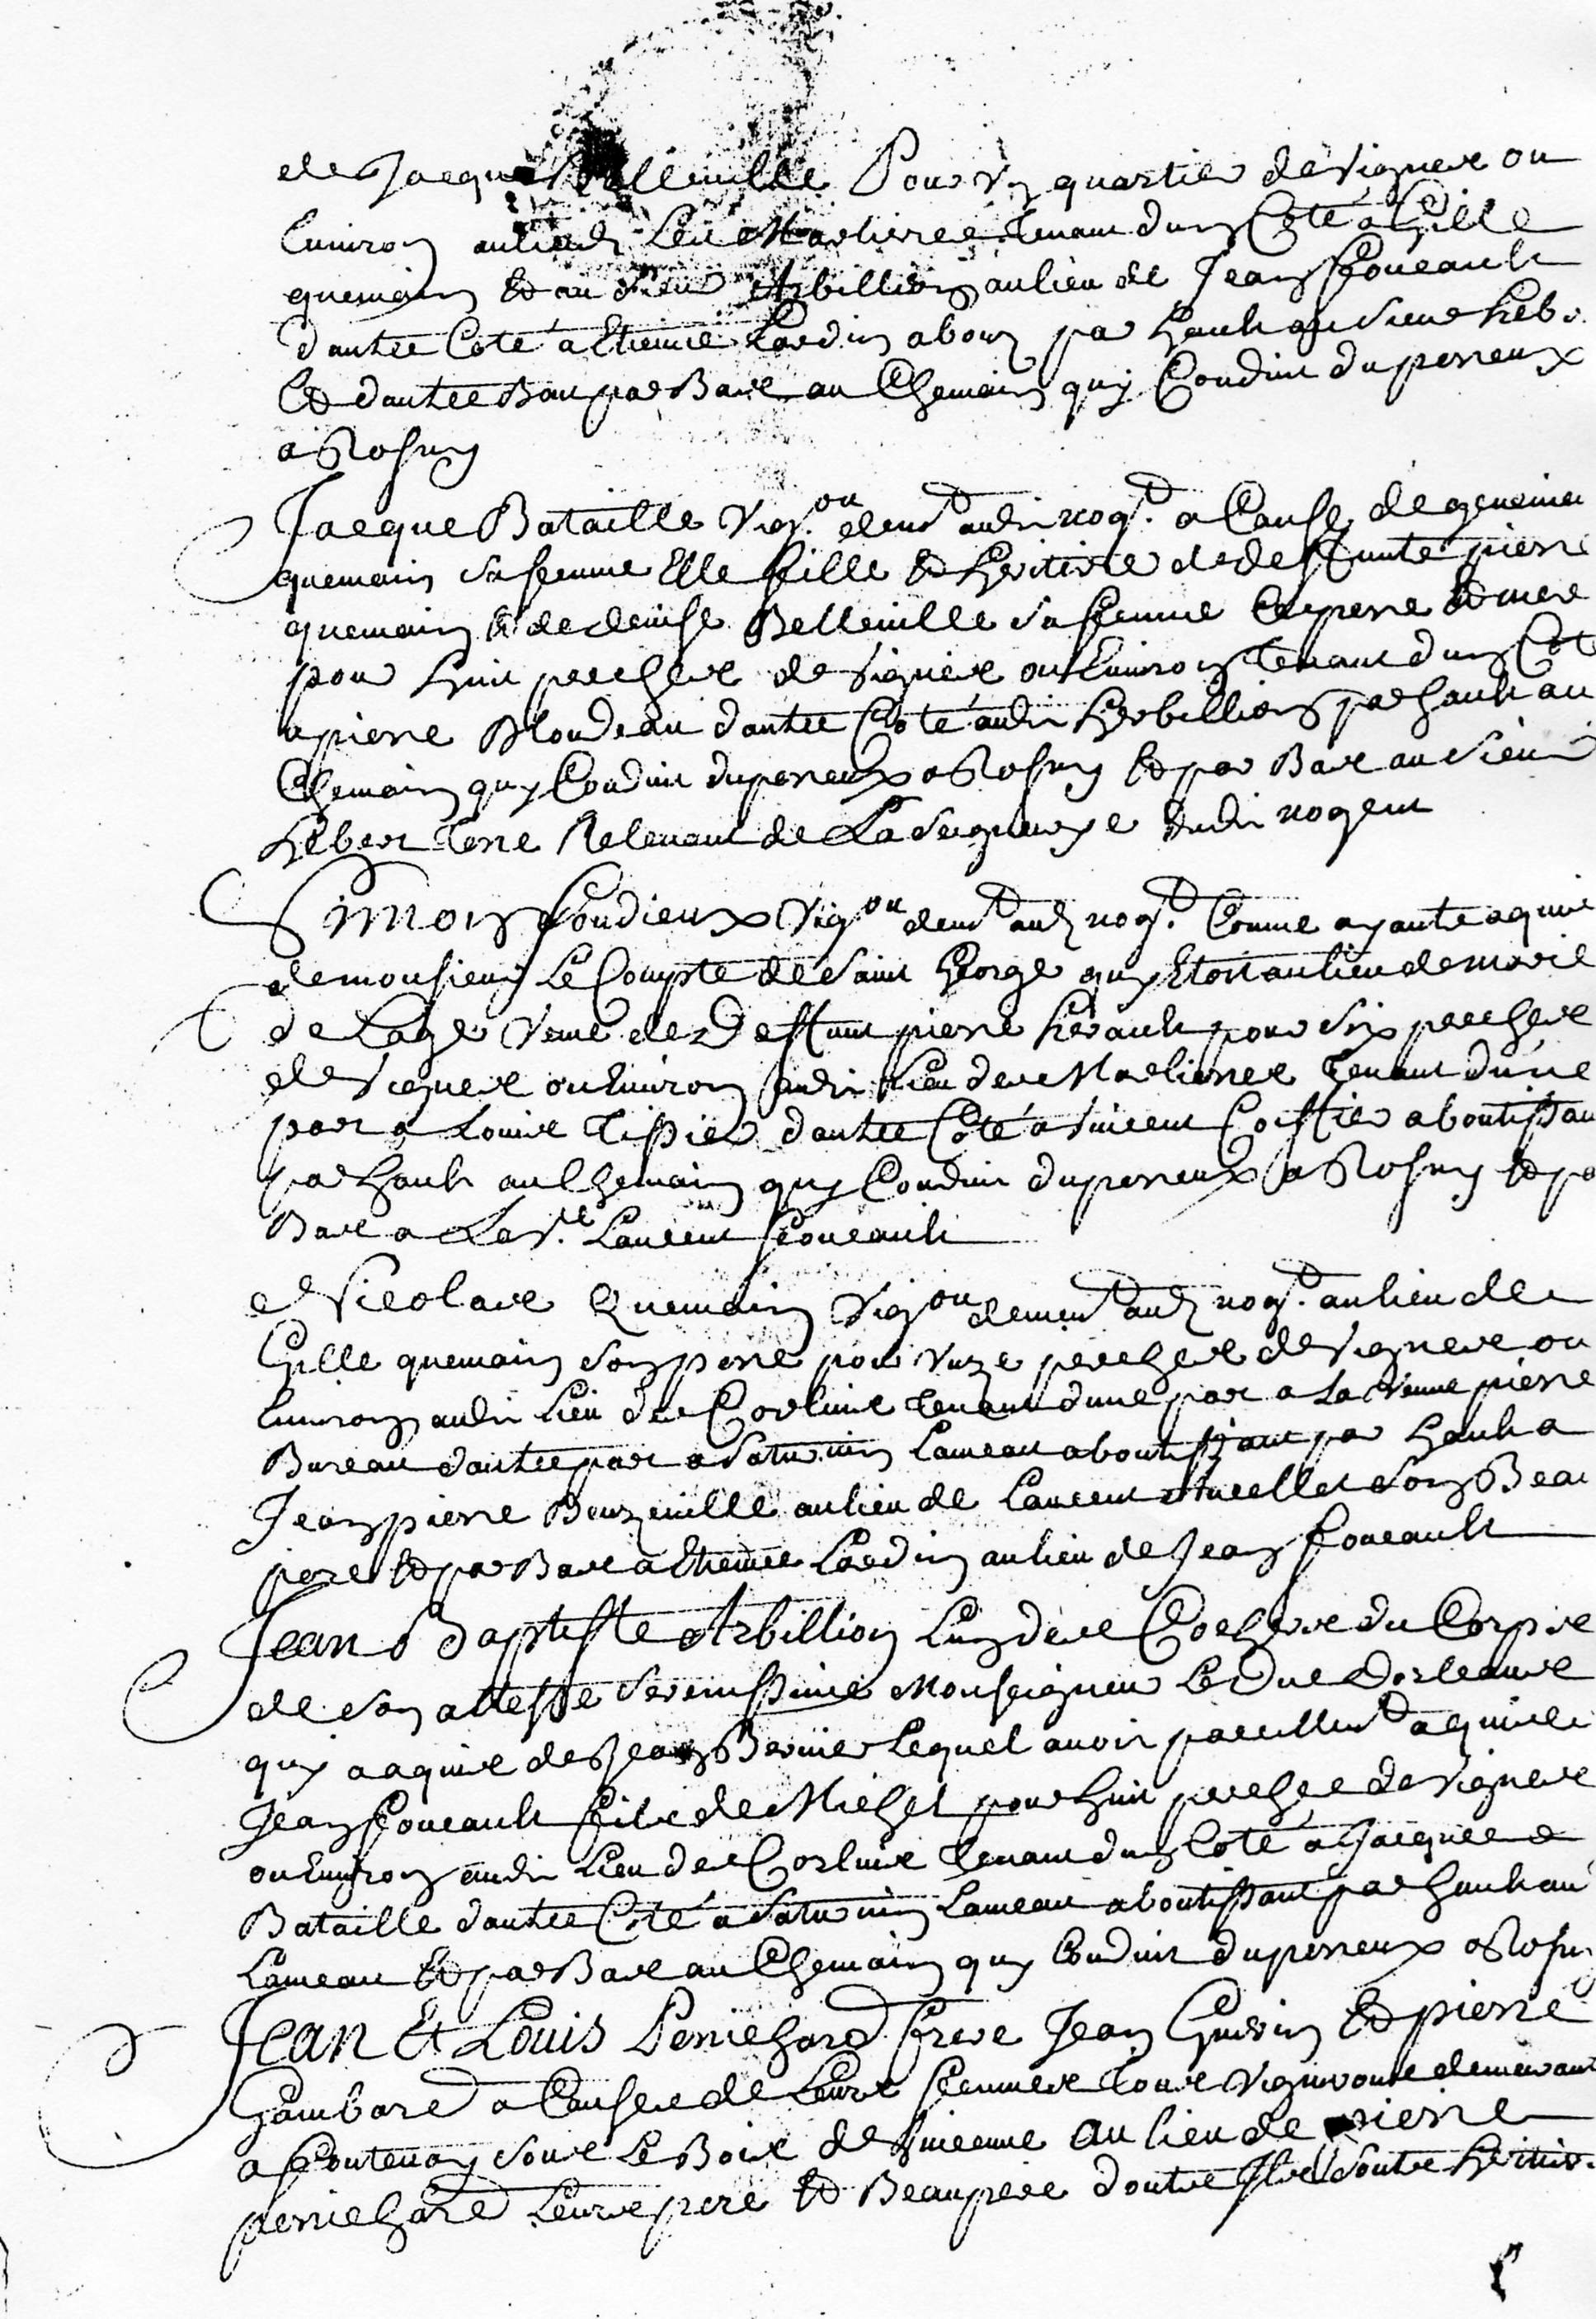 de Jacque Belleville Pour Un quartier de Vignes ou
Environ au lieudit Les Marlieres tenant d'un Coté a Gille
quemain Et au Sieur Arbillion au lieu de Jean foucault
d'autre Coté a Etienne Lardin about par hault au Sieur heb.
Et d'autre Bout par Bas au Chemain quy Conduit du perreux
a Rosny
Jacque Bataille Vigon demt audit nogt a Cause de genevieve
quemain sa femme Elle fille Et heritiere de deffunte pierre
quemain Et de denise Belleville sa femme Ces pere Et mere
pour huit perches de Vignes ou Environ tenant d'un Coté
a pierre Blondeau d'autre Coté audit herbillion par hault au
Chemain quy Conduit du perreux a Rosny Et par Bas au Sieur
heber Terre Relevant de La Seigneurye dudit nogent
Simon foudieux Vigou demt audt nogt Comme ayante aquis
de monsieur Le Compte de Saint George quy Etoit au lieu de marie
de Lage Veuve de Deffunt pierre herault pour Six perches
de Vignes ou Environ audit Lieu des Marlieres tenant d'une
part a Louis Tissier d'autre Coté a Vincent Coiffier aboutissan
par hault au Chemain quy Conduit du perreux a Rosny Et pa
Bas a La Ve Laurent foucault
Nicolas Quemain Vigou demeurt audt nogt au lieu de
Gille quemain Son pere pour Unze perches de Vignes ou
Environ audit Lieu des Corluis tenant d'une part a La Veuve pierre
Bureau d'autre part a Saturnin Lameau aboutissant par hault a
Jean pierre Beuzeville au lieu de Laurent Aucellet Son Beau
pere Et par Bas a Etienne Lardin au lieu de Jean foucault
Jean Baptiste Arbillion L'un des Cochers du Corps
de Son altesse Serenissime Monseigneur Le Duc Dorleans
quy a aquis de Jean Bernier Lequel avoit pareillemt aquis de
Jean foucault fils de Michel pour huit perches de Vignes
ou Environ audit Lieu des Corluis tenant d'un Coté a Jacques
Bataille d'autre Coté a Saturnin Lameau aboutissant par hault au
Lameau Et par Bas au Chemain quy Conduit du perreux a Rosny
Jean Et Louis Pernichard freres Jean Guerin Et pierre
Gambard a Cause de Leurs femmes Tous Vignerons demeurant
a fontenay Sous Le Bois de Vincenne au lieu de pierre
pernichard Leurs pere Et Beaupere dont Ils Sont heritier.